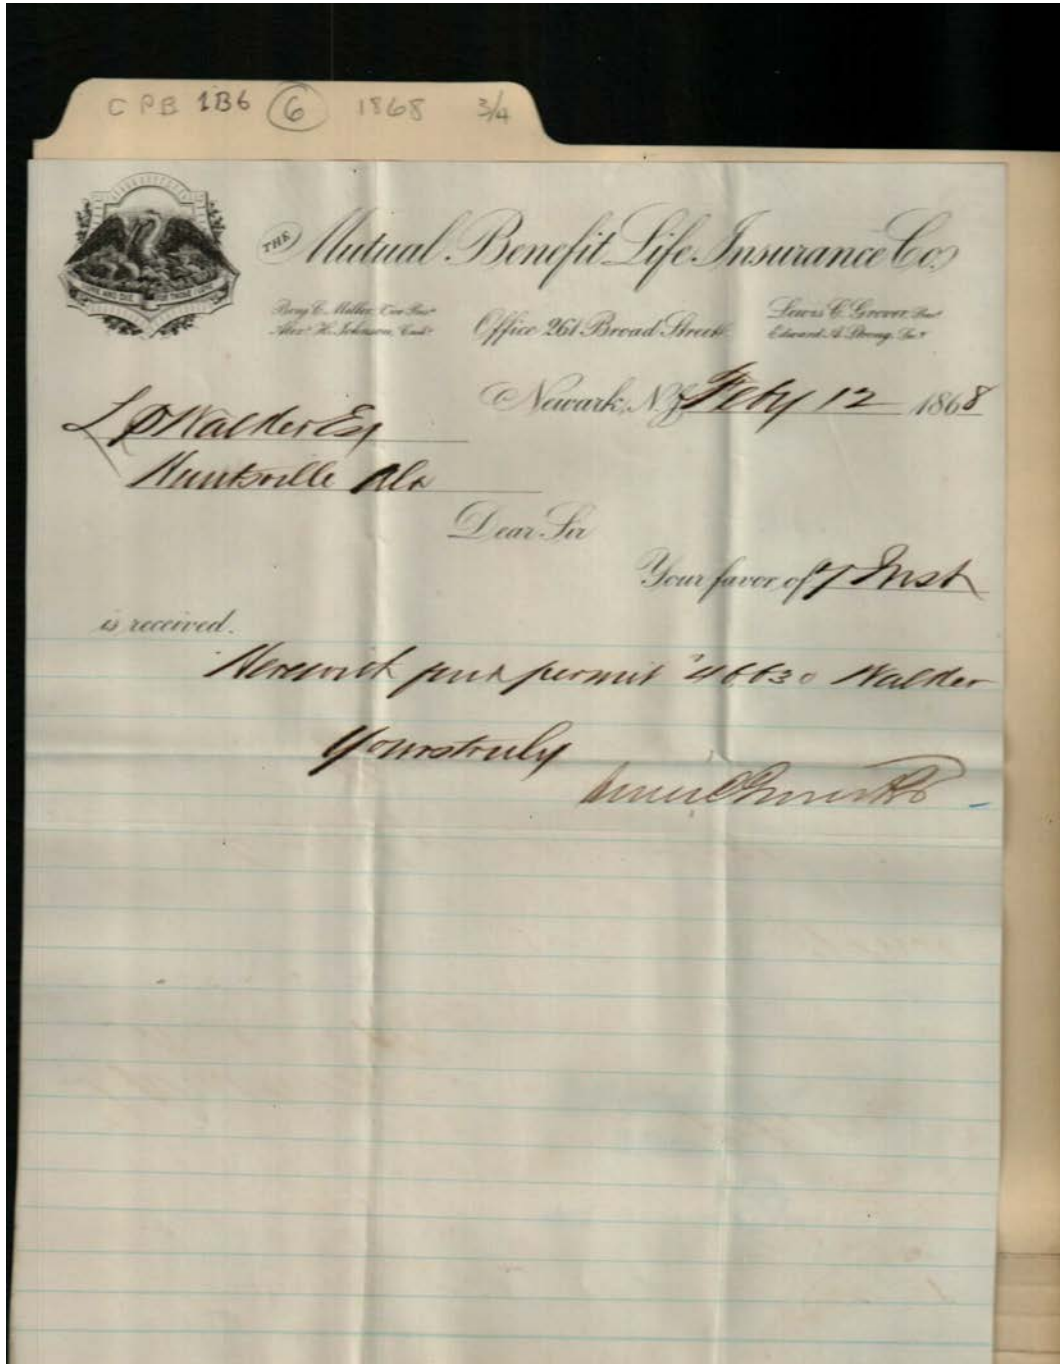 CPB 1B6 6 1868 3/4
THE Mutual Benefit Life Insurance Co.
Benj. C. Miller, Vice Pres.t
Alex.r H. Johnson, Cash.r
Office 261 Broad Street
Lewis C. Grover, Pres.t
Edward A. Strong, Sec.y
Newark, N.J. Feby 12 1868
L P Walker Esq
Huntsville Ala
Dear Sir
Your favor of 7 Inst
is received.
Herewith permit 46630 Walker
Yours truly